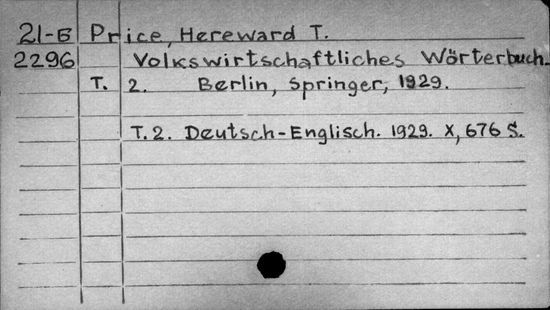 21-Б Price, Hereward T.
2296 Volkswirtschaftliches Wörterbuch.
T. 2. Berlin, Springer, 1929.
T. 2. Deutsch-Englisch. 1929. X, 676 S.